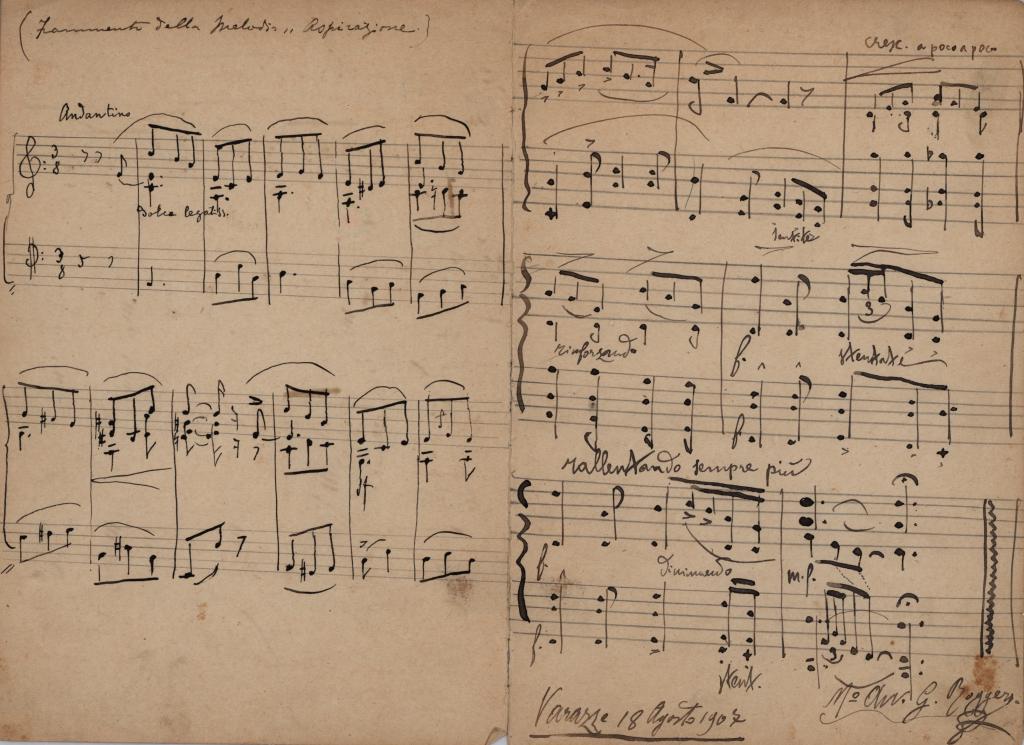 (Frammento della Melodia „ Aspirazione.)
Andantino
3/8
dolce legatiss.
3/8
cresc. a poco a poco
rinforzando
f.
stentate
f.
3
rallentando sempre più
f.
diminuendo
m.f.
f.
stent.
3
Varazze 18 Agosto 1907
Mo Av. G.